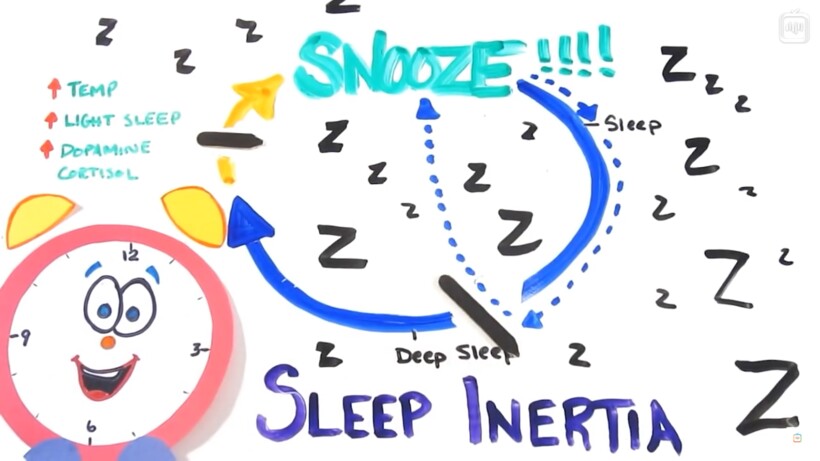 Z
Z
Z
Z
SNOOZE!!!!
Z
Z
Z
↑ TEMP
↑ LIGHT SLEEP
↑ DOPAMINE
CORTISOL
Sleep
Z
Z
Z
Z
Z
Z
Z
Z
Z
Z
Z
Z
Z
Z
12
9
3
6
Deep Sleep
Z
Z
Z
SLEEP INERTIA